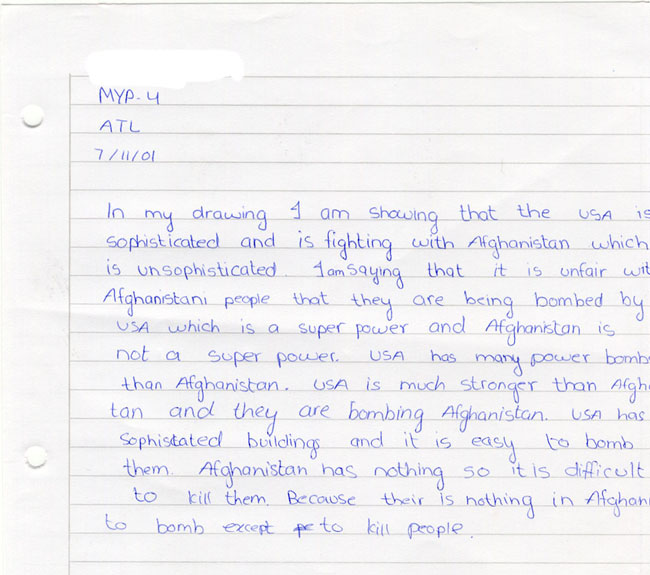 MYP-4
ATL
7/11/01
In my drawing I am showing that the USA is
sophisticated and is fighting with Afghanistan which
is unsophisticated. I am saying that it is unfair wit
Afghanistani people that they are being bombed by
USA which is a super power and Afghanistan is
not a super power. USA has many power bombs
than Afghanistan. USA is much stronger than Afgh
tan and they are bombing Afghanistan. USA has
sophistated buildings and it is easy to bomb
them. Afghanistan has nothing so it is difficult
to kill them. Because their is nothing in Afghani
to bomb except to kill people.